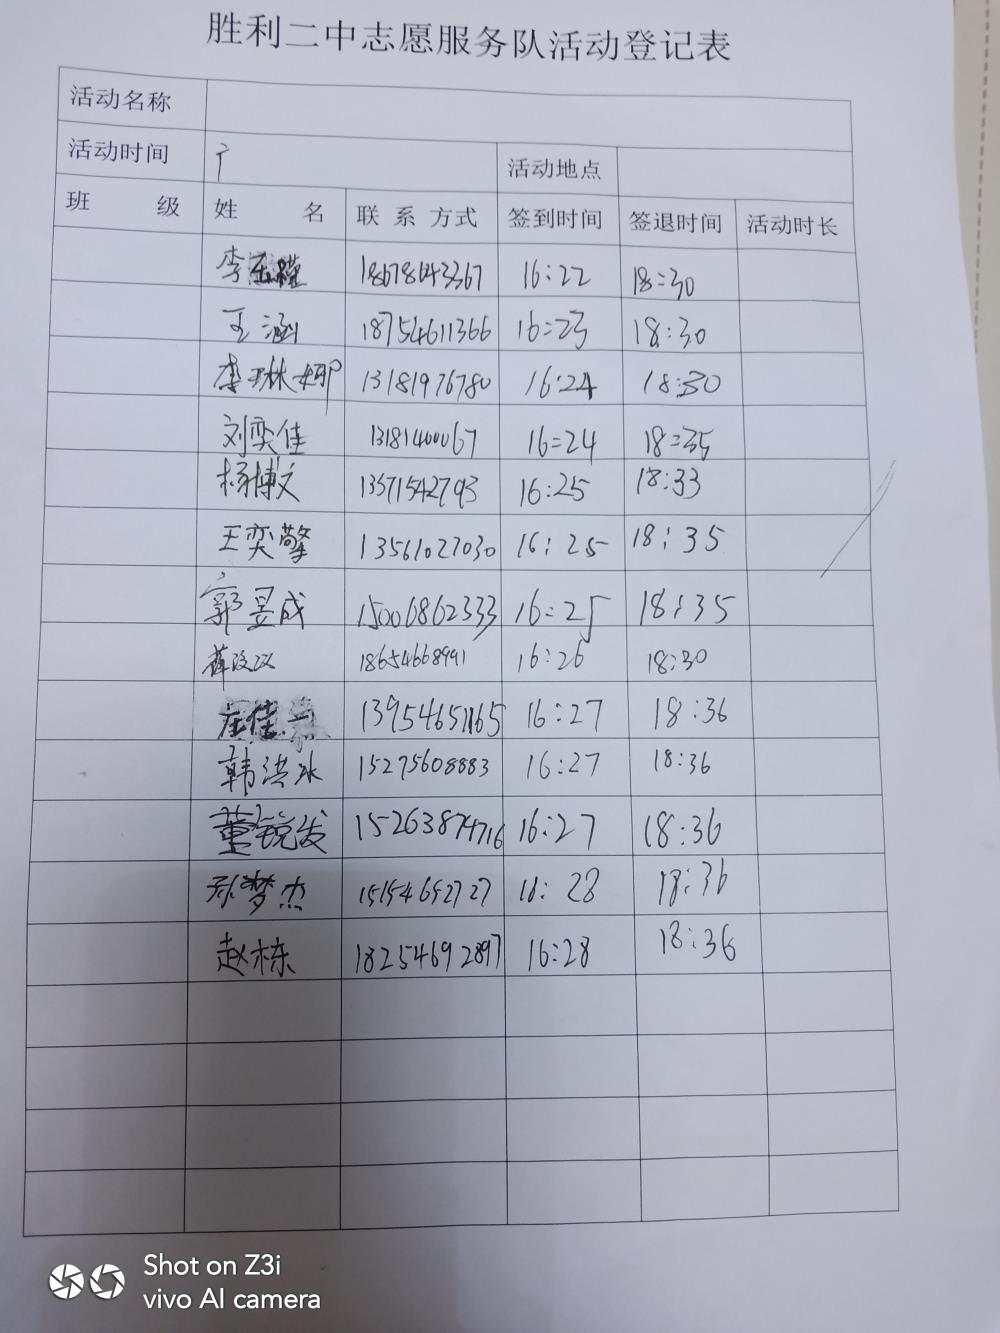 胜利二中志愿服务队活动登记表
活动名称
活动时间 活动地点
班 级 姓 名 联 系 方式 签到时间 签退时间 活动时长
李 18678643367 16:22 18:30
王涵 18754611366 16:23 18:30
李琳娜 13181976780 16:24 18:30
刘奕佳 13181400067 16:24 18:35
杨博文 13571542793 16:25 18:33
王奕擎 13561027030 16:25 18:35
郭昱成 15006862333 16:25 18:35
薛 18654668991 16:26 18:30
庄佳 13954651165 16:27 18:36
韩洪冰 15275608883 16:27 18:36
董锐发 15263874716 16:27 18:36
孙梦杰 15154652727 16:28 18:36
赵栋 18254692897 16:28 18:36
Shot on Z3i
vivo AI camera